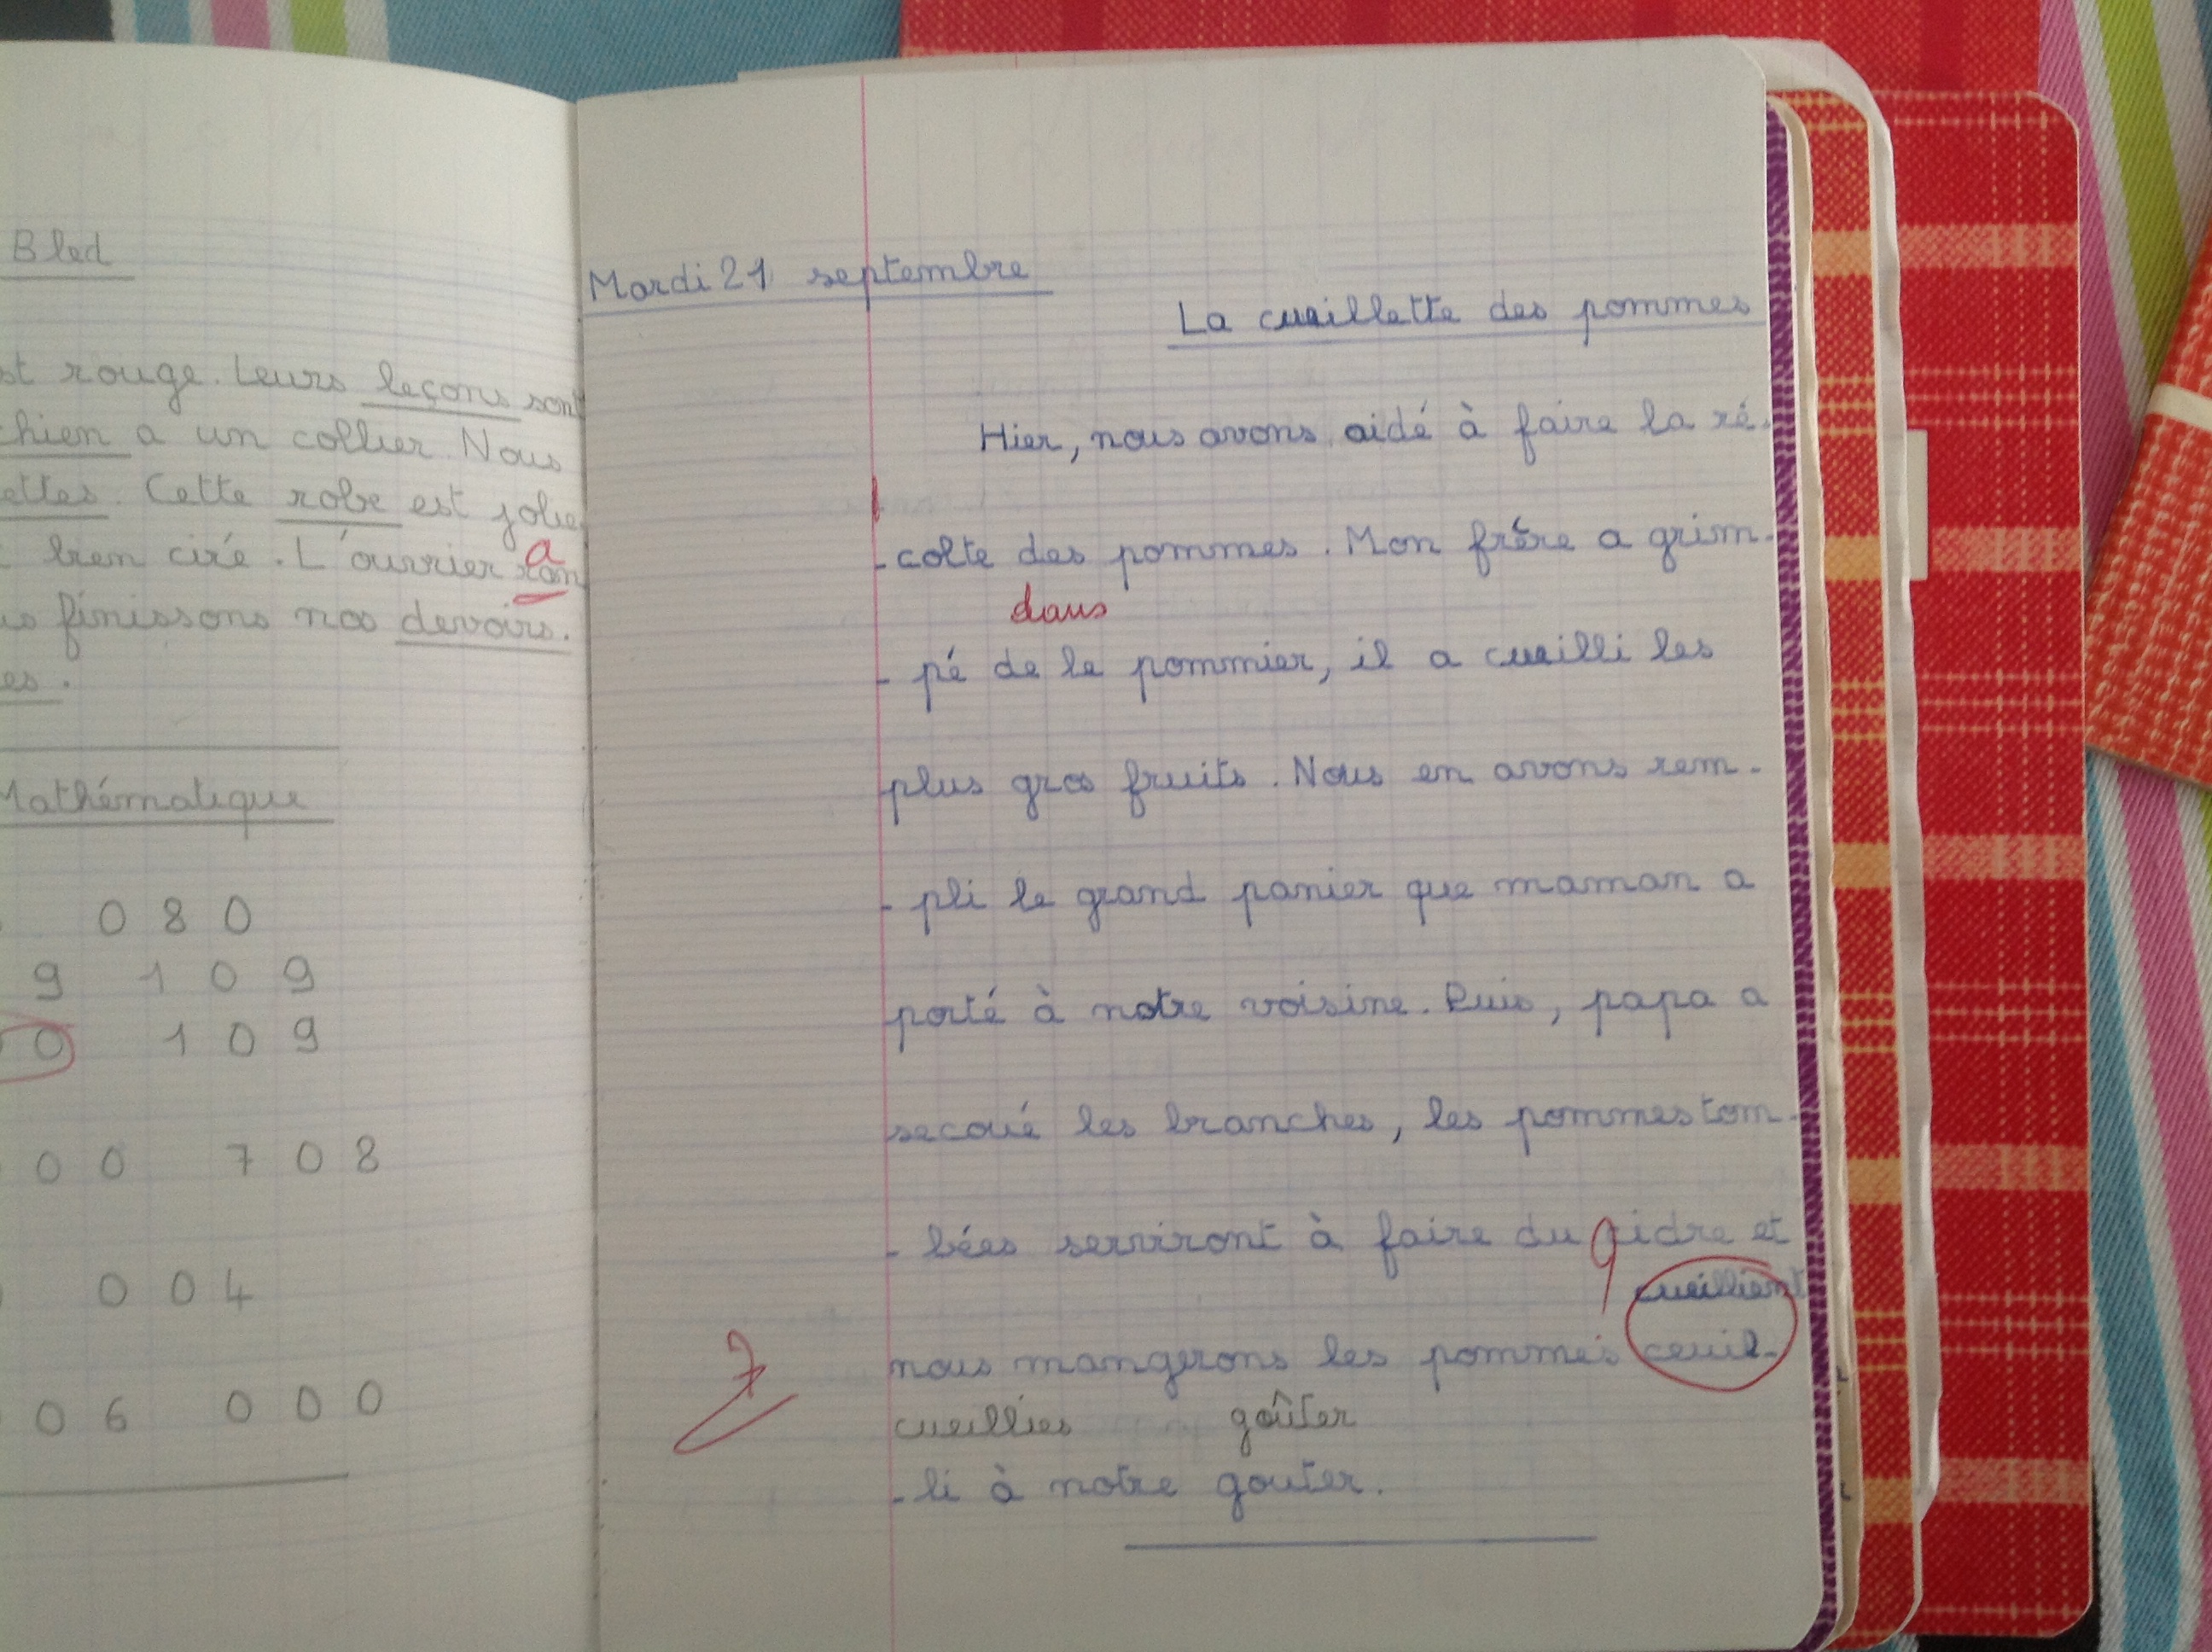 Bled
st rouge. Leurs leçons sont
chien a un collier. Nous
ettes. Cette robe est jolie
bien ciré. L'ouvrier
a
us finissons nos devoirs.
es.
Mathématique
0 8 0
9 1 0 9
0 1 0 9
0 0 7 0 8
0 0 4
0 6 0 0 0
Mardi 21 septembre
La cueillette des pommes
Hier, nous avons aidé à faire la ré-
-colte des pommes. Mon frère a grim-
dans
-pé de le pommier, il a cueilli les
plus gros fruits. Nous en avons rem-
-pli le grand panier que maman a
porté à notre voisine. Puis, papa a
secoué les branches, les pommes tom-
-bées serviront à faire du cidre et
cueillient
nous mangerons les pommes ceuil-
cueillies goûter
-li à notre gouter.